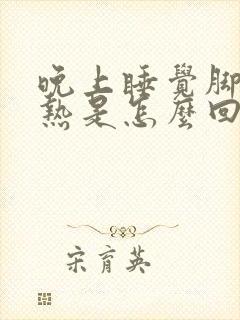 晚上睡覺腳
熱是怎麼回
宋育英